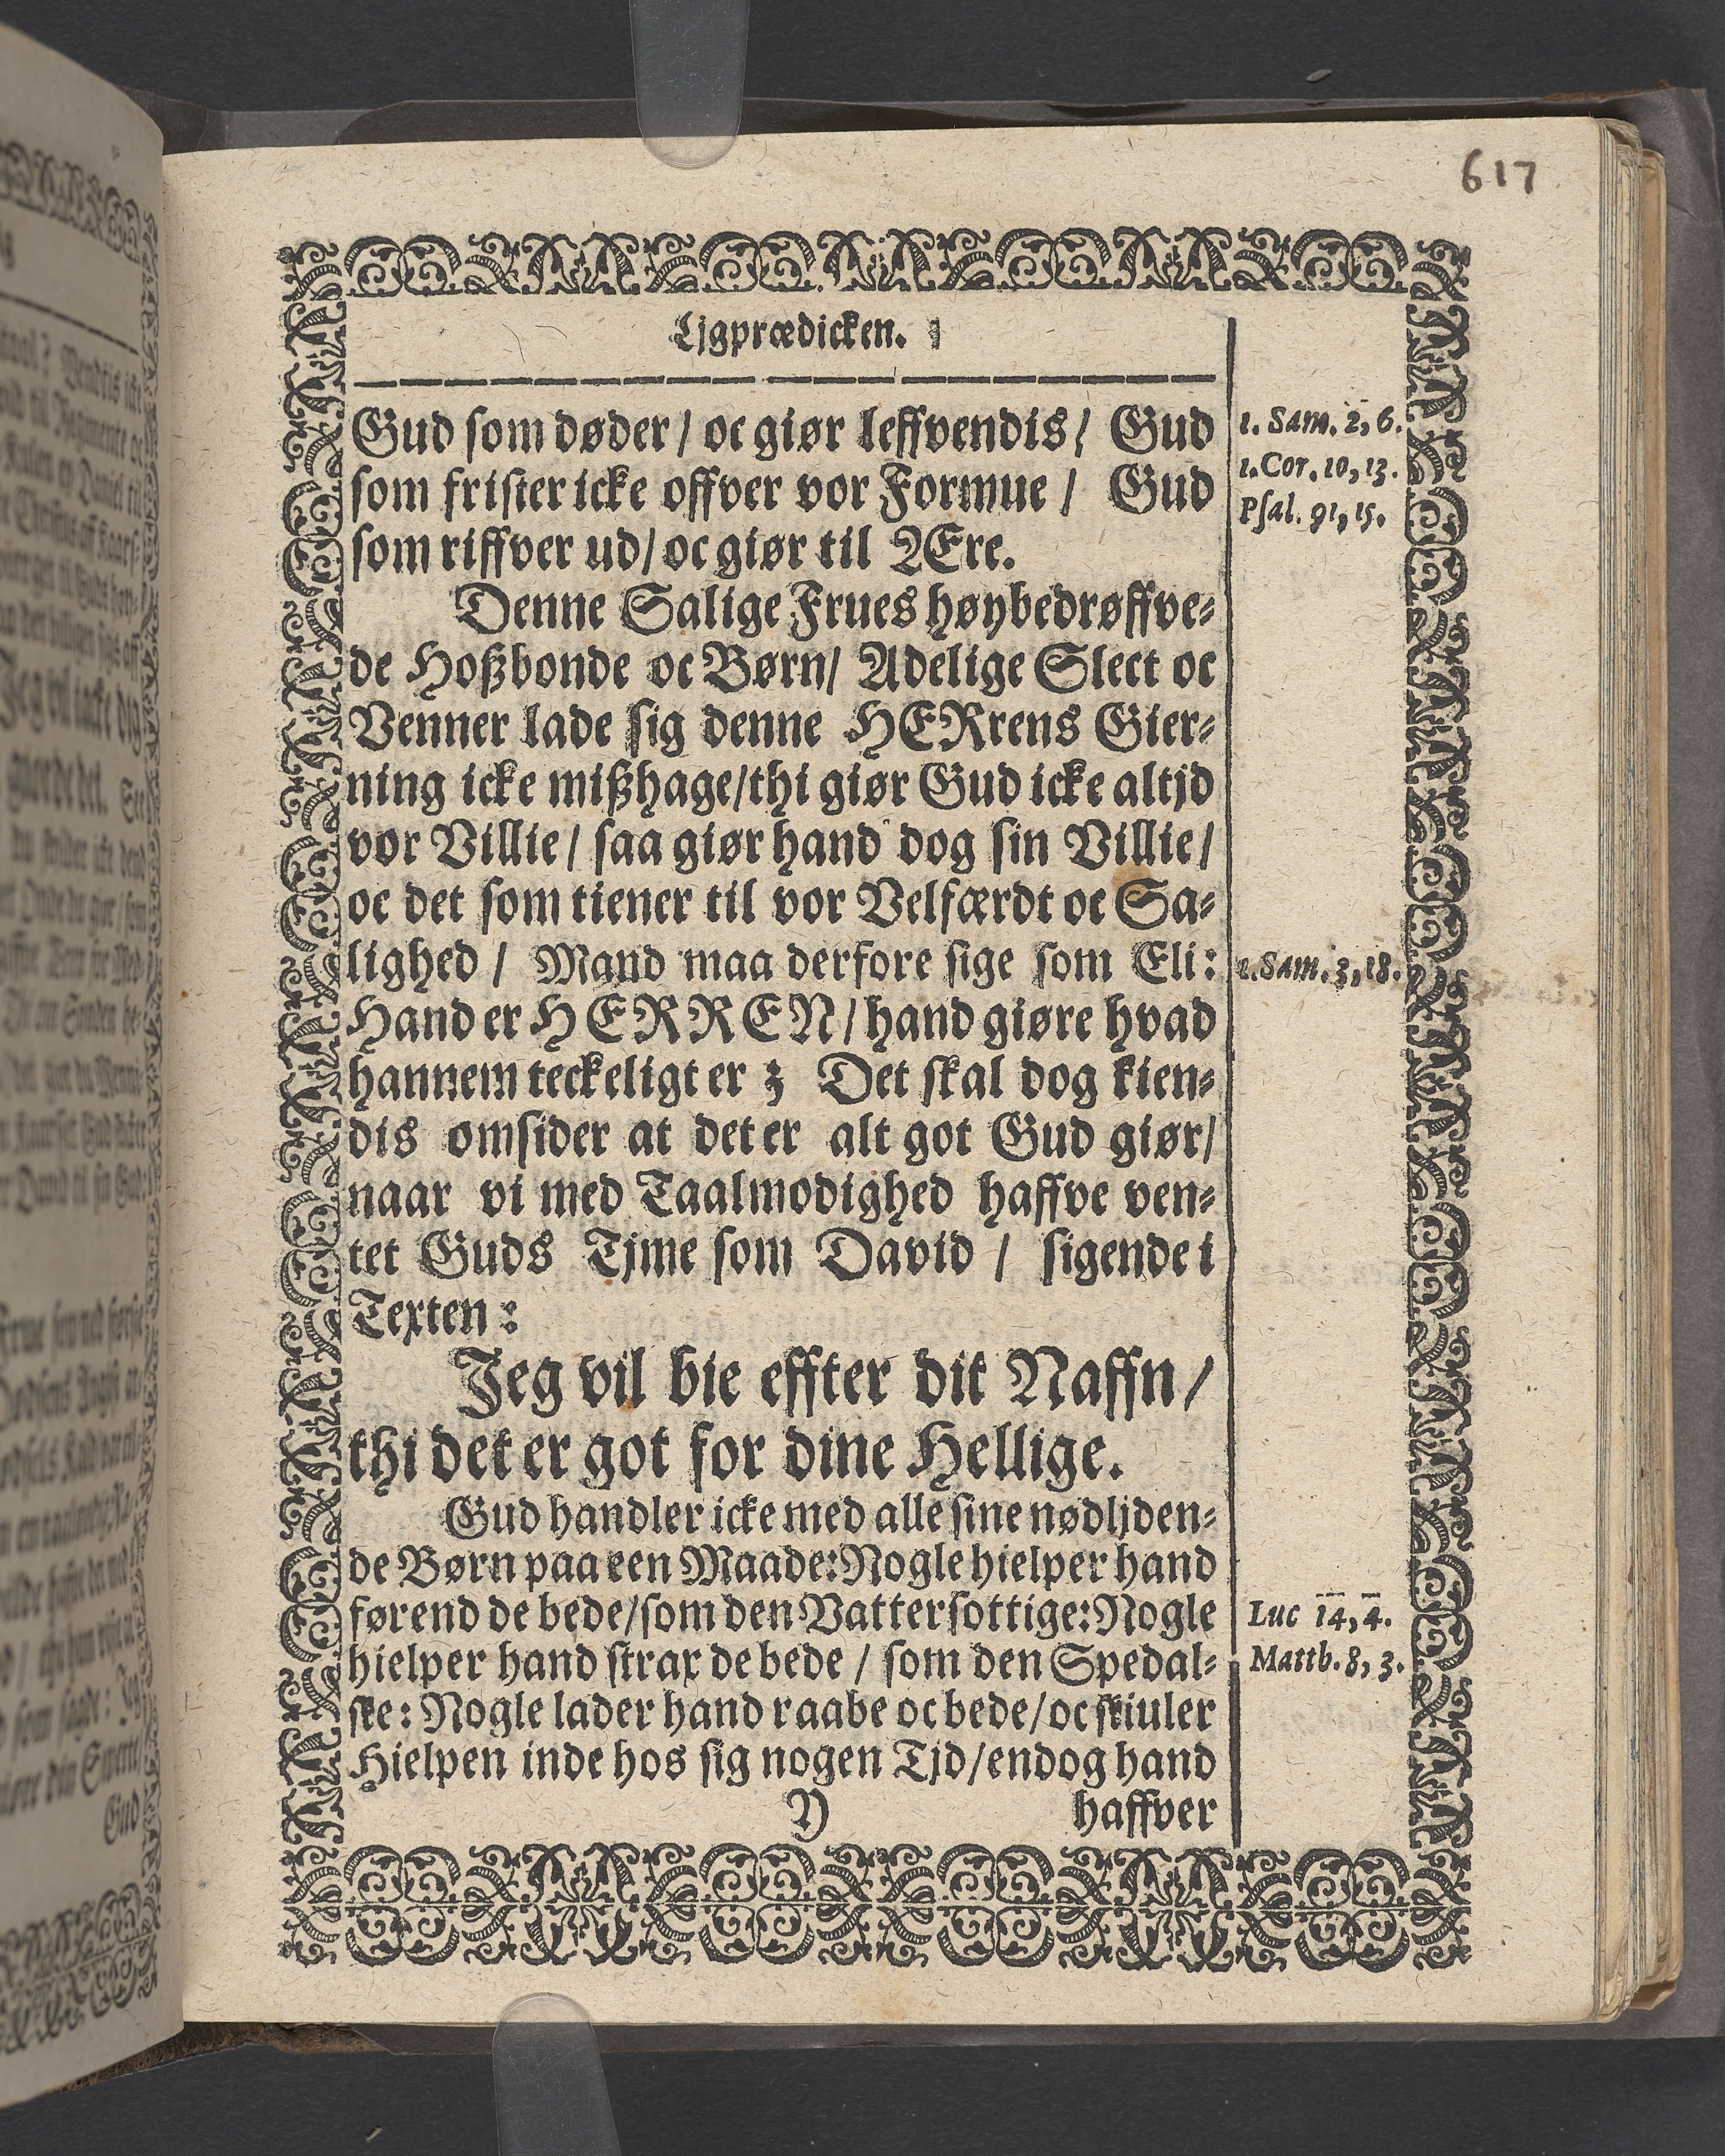 617
Ljgprædicken.
Gud som døder / oc giør leffvendis / Gud
1. Sam. 2, 6.
som frister icke offver vor Formue / Gud
1. Cor. 10, 13.
Psal. 91, 15.
som riffver ud / oc giør til ÆEre.
Denne Salige Frues høybedrøffve-
de Hoßbonde oc Børn / Adelige Slect oc
Venner lade sig denne HERrens Gier-
ning icke mißhage / thi giør Gud icke altjd
vor Villie / saa giør hand dog sin Villie /
oc det som tiener til vor Velfærdt oc Sa-
lighed / Mand maa derfore sige som Eli:
1. Sam. 3, 18.
Hand er HERREN / hand giøre hvad
hannem teckeligt er ꝫ Det skal dog kien-
dis omsider at det er alt got Gud giør /
naar vi med Taalmodighed haffve ven-
tet Guds Tjme som David / sigende i
Texten:
Jeg vil bie effter dit Naffn /
thi det er got for dine Hellige.
Gud handler icke med alle sine nødljden-
de Børn paa een Maade: Nogle hielper hand
førend de bede / som den Vattersottige: Nogle
Luc 14, 4.
hielper hand strax de bede / som den Spedal-
Matth. 8, 3.
ske: Nogle lader hand raabe oc bede / oc skiuler
Hielpen inde hos sig nogen Tjd / endog hand
Y haffver